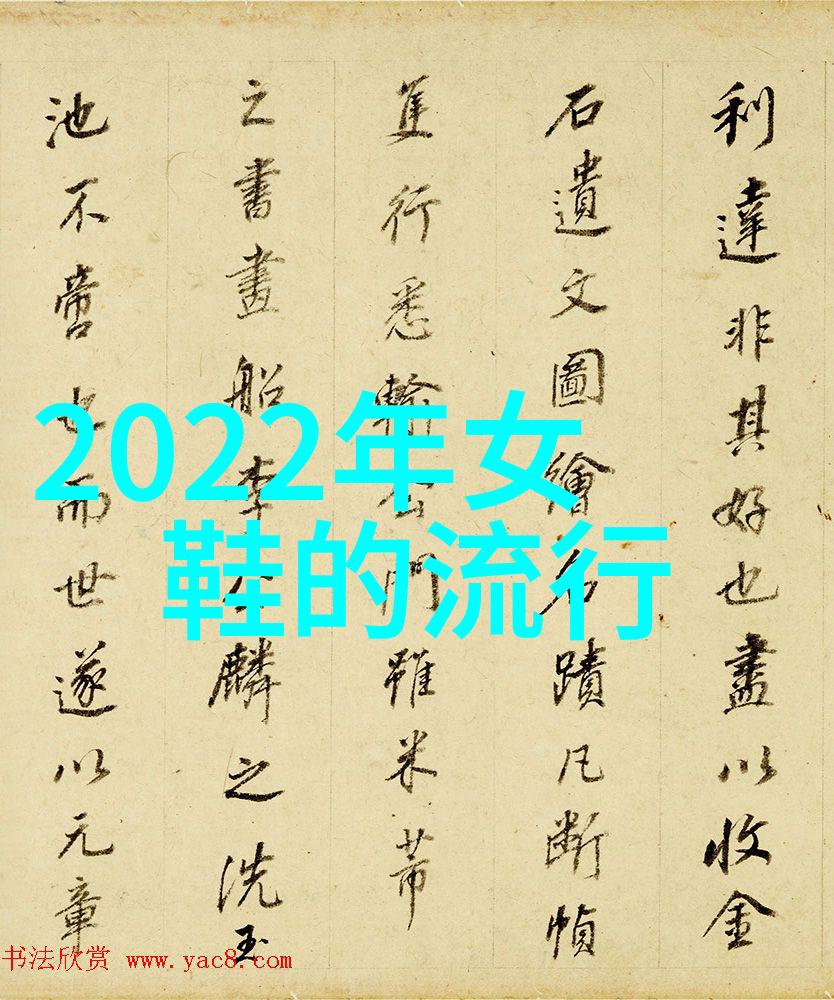 利達非其好也盡以收金
石遺文圖繪名蹟凡斷幀
隻行悉輸公門雖米芾
之書畫船李公麟之洗玉
池不啻也而世遂以元章
2022年女
鞋的流行
书法欣赏 www.yac8.com